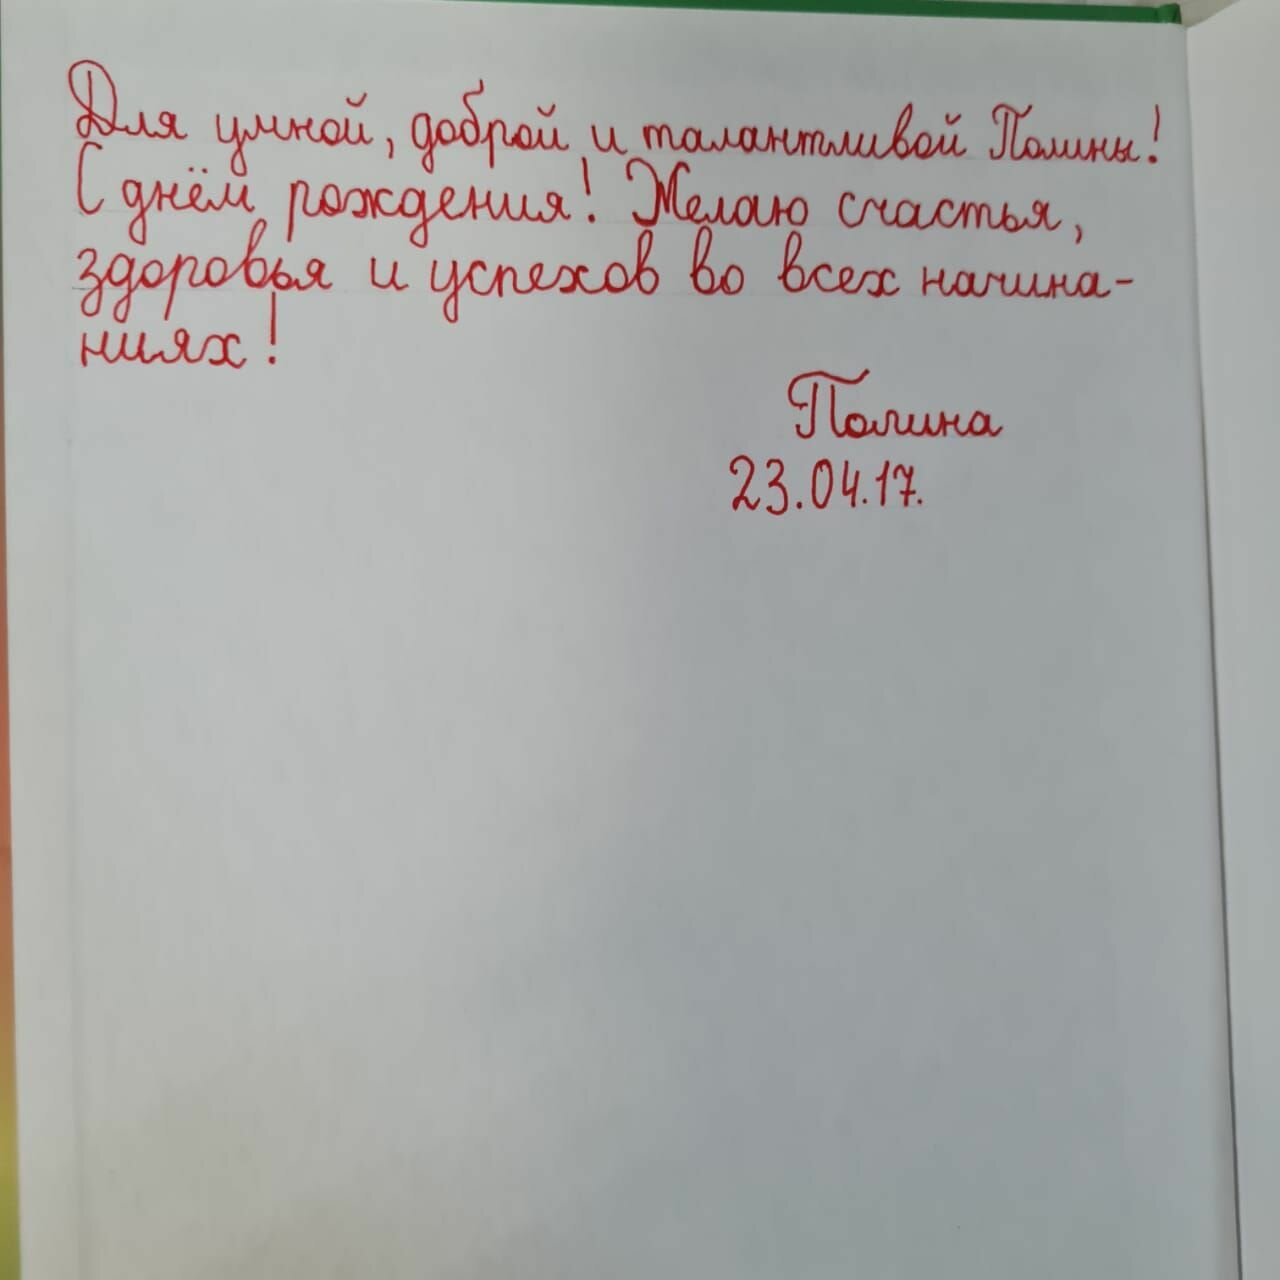 Для умной, доброй и талантливой Полины!
С днём рождения! Желаю счастья,
здоровья и успехов во всех начина-
ниях!
Полина
23.04.17.